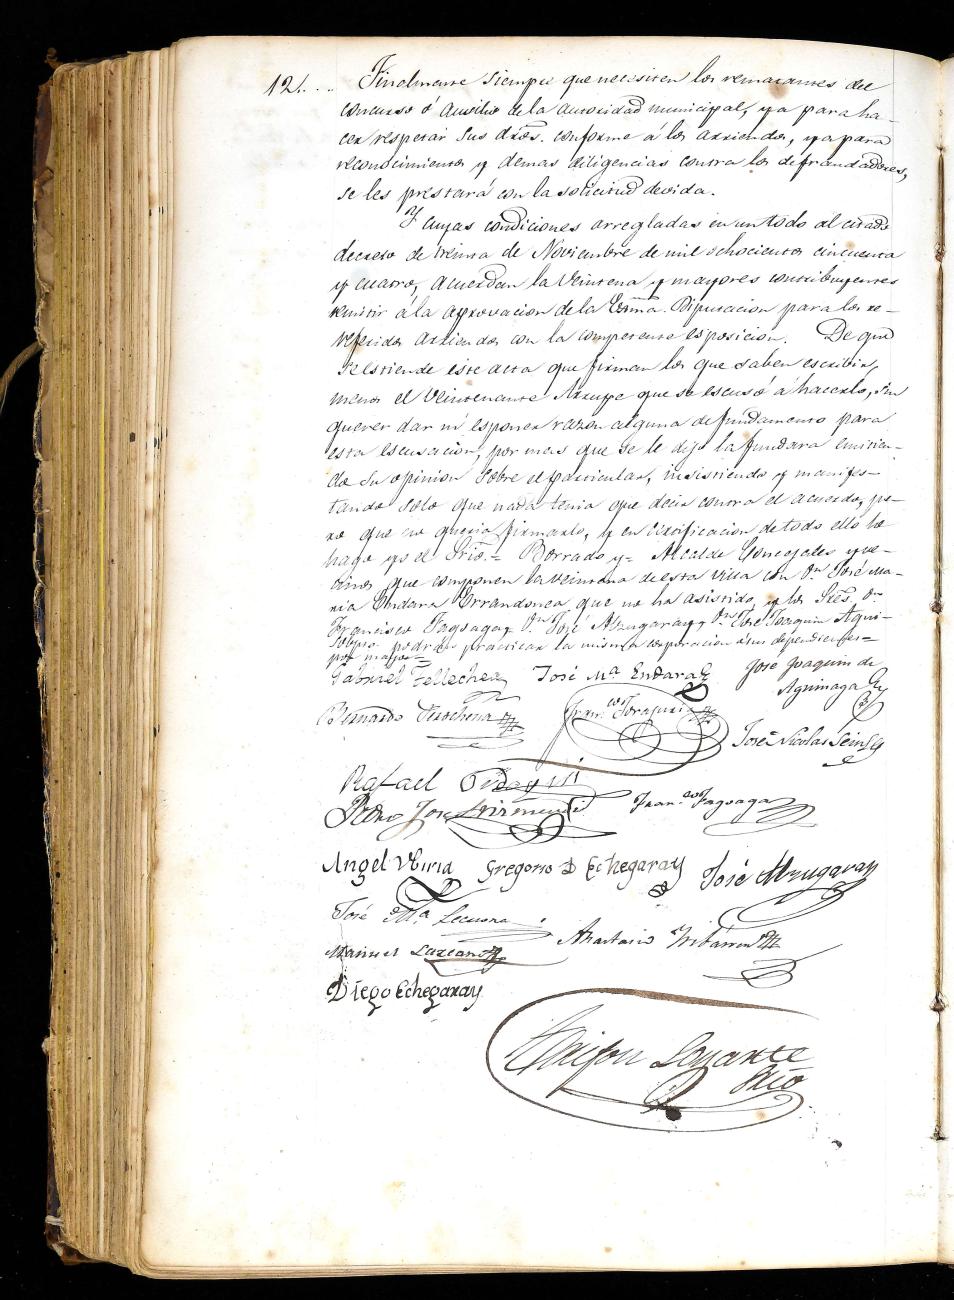 12.... Finalmente siempre que necesiten los rematantes del
concurso ó ausilio de la autoridad municipal, ya para ha-
cer respetar sus dros. conforme á los arriendos, ya para
reconocimientos y demas diligencias contra los defraudadores,
se les prestará con la solicitud devida.
Y cuyas condiciones arregladas en un todo al citado
decreto de treinta de Noviembre de mil ochocientos cincuenta
y cuatro, acuerdan la Veintena y mayores contribuyentes
remitir á la aprovacion de la Exma. Diputacion para los re-
feridos arriendos con la competente esposicion. De que
se estiende este acta que firman los que saben escribir,
menos el Veintenante Arrupe que se escusó á hacerlo, sin
querer dar ni esponer razon alguna de fundamento para
esta escusacion, por mas que se le dijo la fundara emitien-
do su opinion sobre el particular, insistiendo y manifes-
tando solo que nada tenia que decir contra el acuerdo, pe-
ro que no queria firmarlo, y en certificacion de todo ello lo
hago yo el Srio.= Borrado y= Alcalde Concejales y ve-
cinos que componen la veintena de esta villa con Dn. José Ma-
ria Endara Orrandonea que no ha asistido y los Sres. Dn.
Francisco Fagoaga, Dn. José Alzugaray y Dn. José Joaquin Agui-
podrán practicar la misma corporacion ó sus dependientes=
Gabriel Tellechea José Ma. Endara José Joaquin de
Aguinaga
Bernardo Franco. José Nicolas Sein
Rafael
Pedro José Franco. Fagoaga
Angel Gregorio D Echegaray José Alzugaray
José Ma. Lecuona
Manuel Anastasio Iribarren
Diego Echegaray
Srio